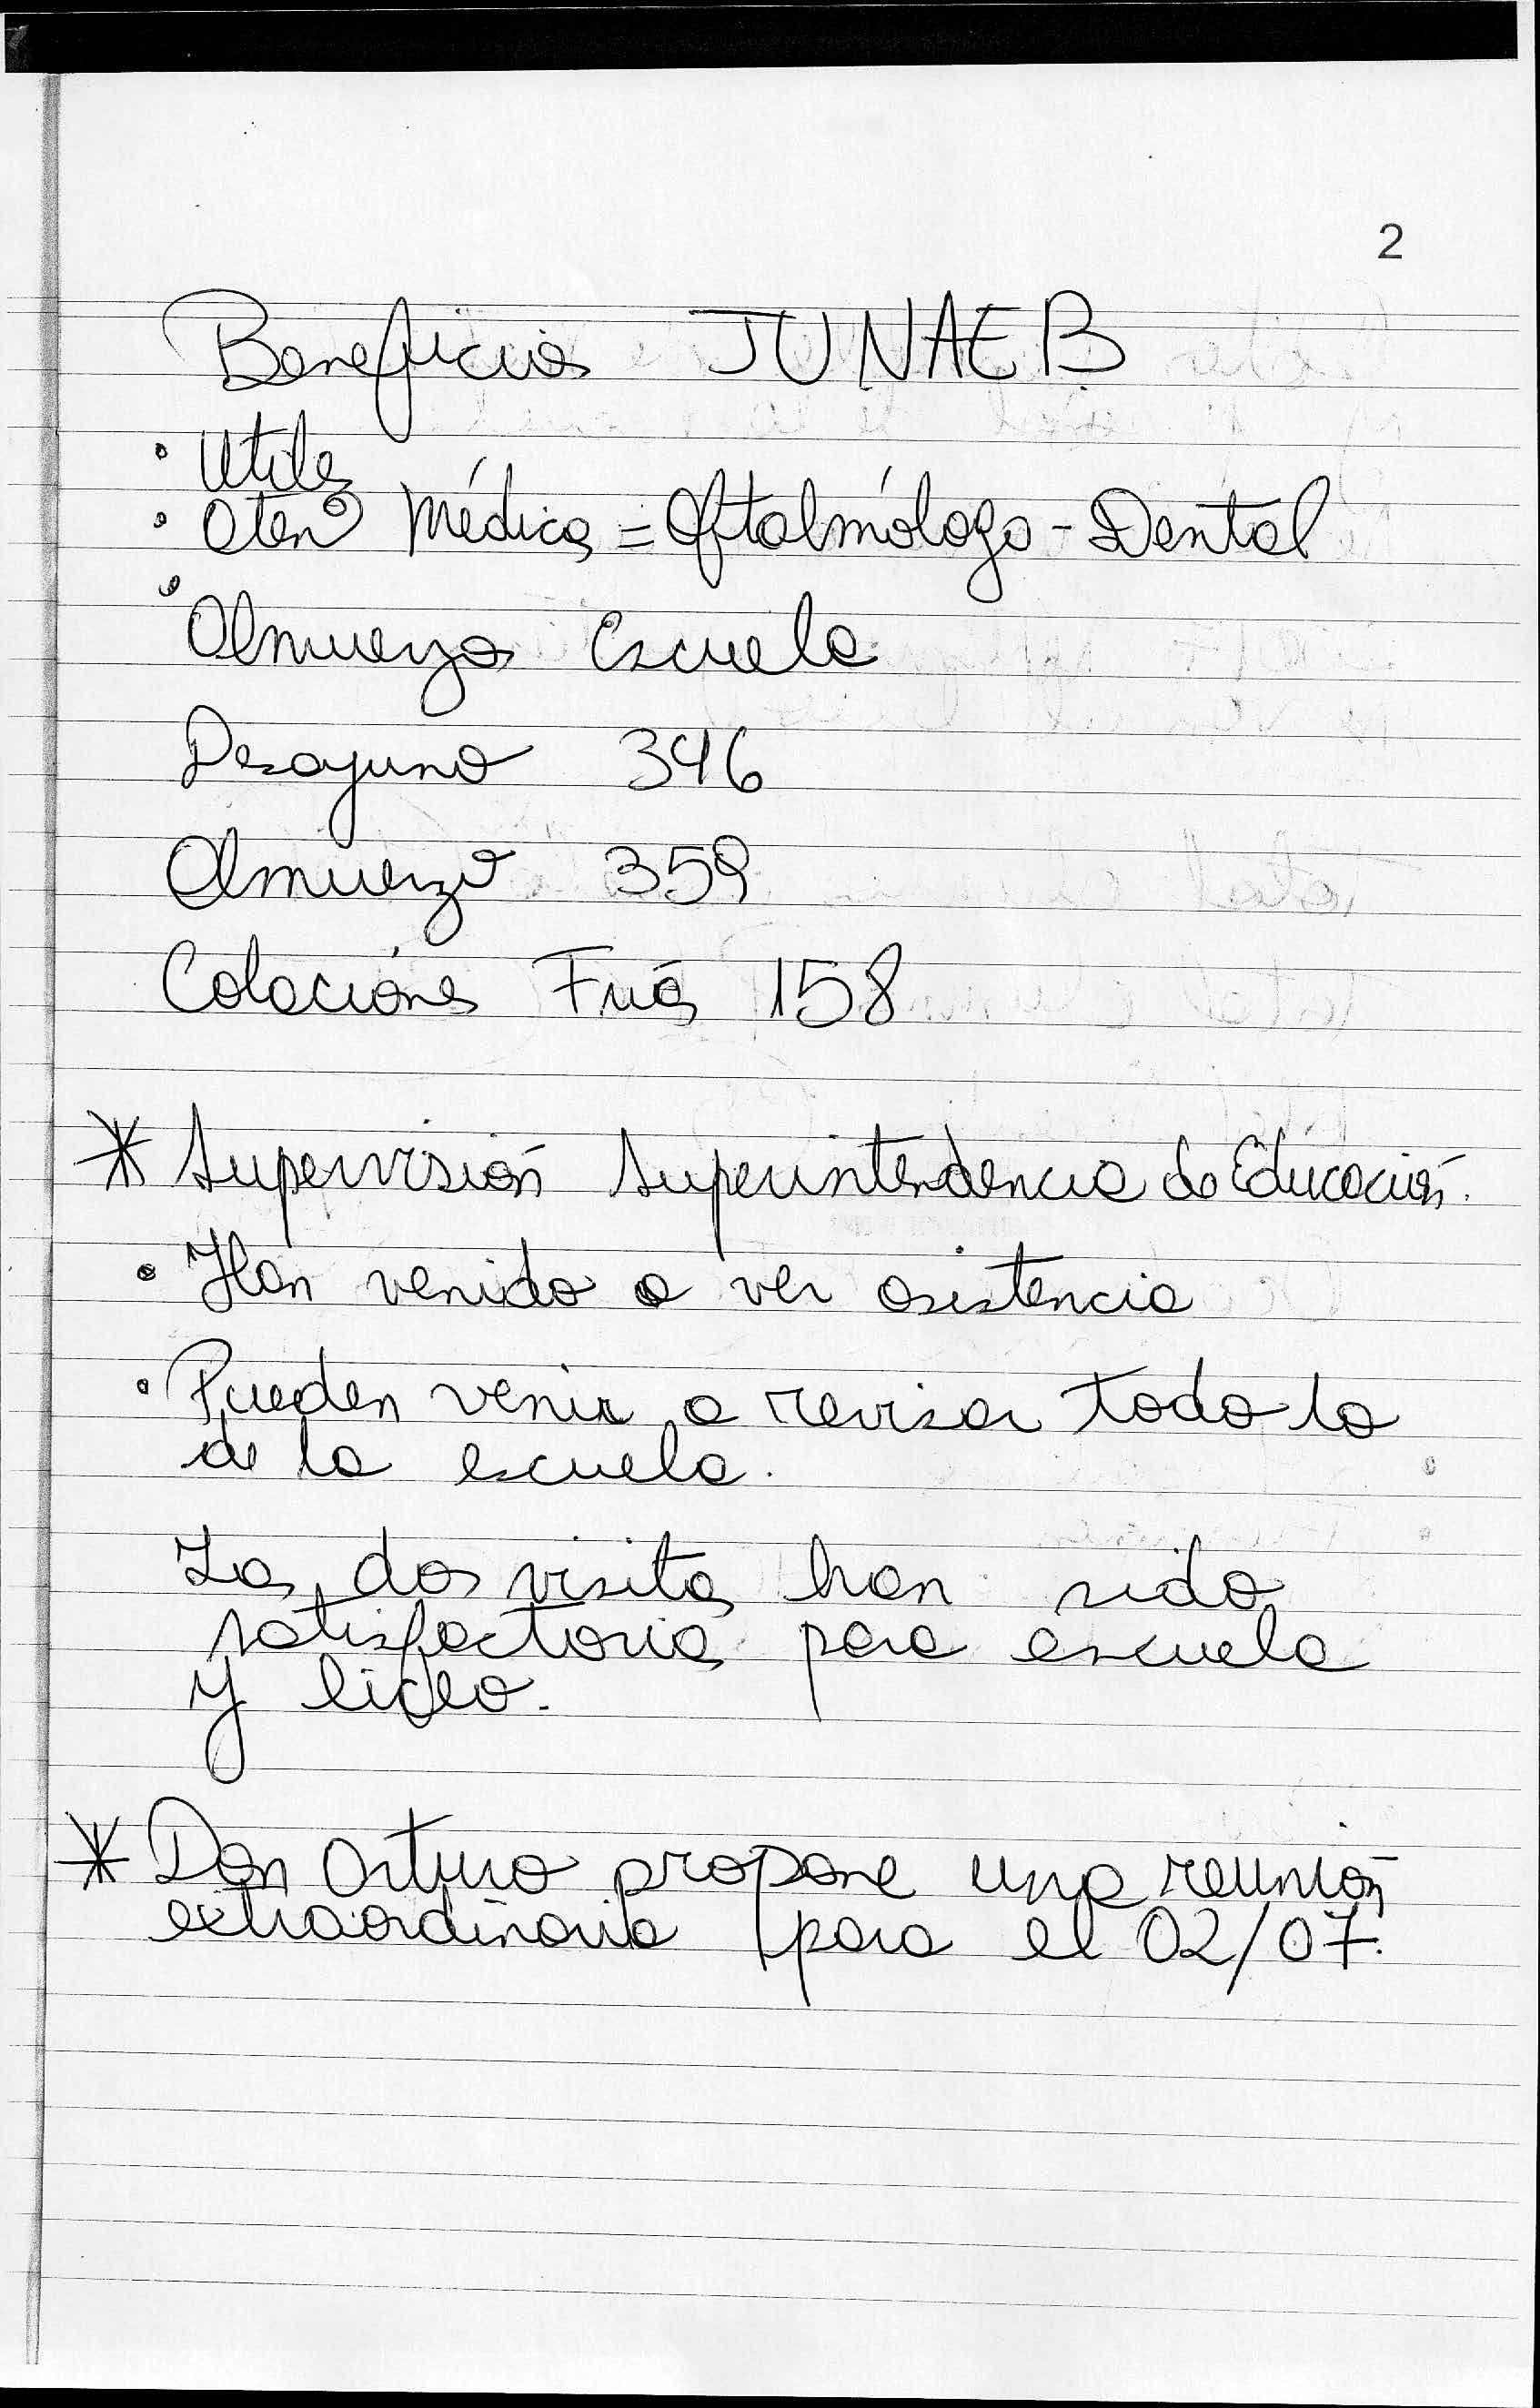 2
Beneficios JUNAEB
• Utiles
• Aten Médica = Oftalmólogo - Dental
• Almuerzo Escuela
Desayuno 346
Almuerzo 359
Colaciónes Frías 158
* Supervisión Superintendencia de Educación.
• Han venido a ver asistencia
• Pueden venir a revisar todo lo
de la escuela.
Las dos visitas han sido
satisfactorias para escuela
y liceo.
* Don Arturo propone una reunión
extraordinaria para el 02/07.